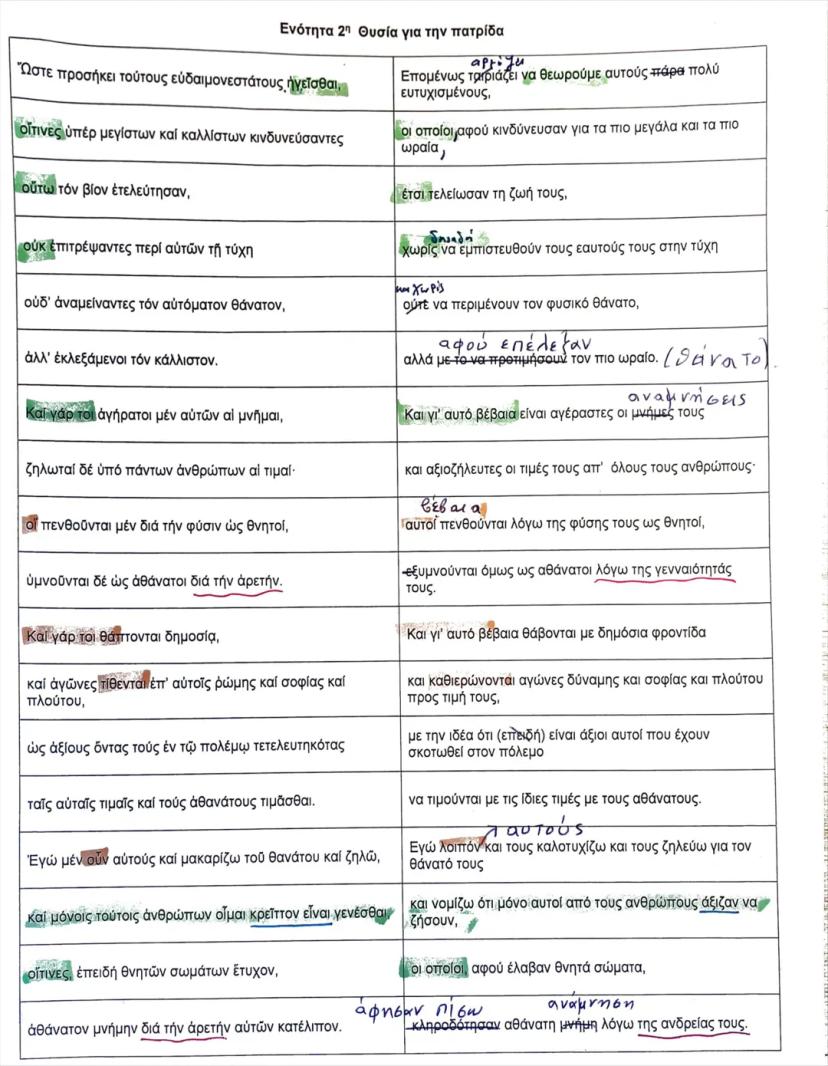 Ενότητα 2η Θυσία για την πατρίδα
Ὥστε προσήκει τούτους εὐδαιμονεστάτους ἡγεῖσθαι,
αρμόζει
Επομένως ταιριάζει να θεωρούμε αυτούς πάρα πολύ
ευτυχισμένους,
οἵτινες ὑπέρ μεγίστων καί καλλίστων κινδυνεύσαντες
οι οποίοι, αφού κινδύνευσαν για τα πιο μεγάλα και τα πιο
ωραία,
οὕτω τόν βίον ἐτελεύτησαν,
έτσι τελείωσαν τη ζωή τους,
οὐκ ἐπιτρέψαντες περί αὐτῶν τῇ τύχῃ
δηλαδή
χωρίς να εμπιστευθούν τους εαυτούς τους στην τύχη
οὐδ' ἀναμείναντες τόν αὐτόματον θάνατον,
και χωρίς
ούτε να περιμένουν τον φυσικό θάνατο,
ἀλλ' ἐκλεξάμενοι τόν κάλλιστον.
αφού επέλεξαν
αλλά με το να προτιμήσουν τον πιο ωραίο. (θάνατο).
Καί γάρ τοι ἀγήρατοι μέν αὐτῶν αἱ μνῆμαι,
αναμνήσεις
Και γι' αυτό βέβαια είναι αγέραστες οι μνήμες τους
ζηλωταί δέ ὑπό πάντων ἀνθρώπων αἱ τιμαί·
και αξιοζήλευτες οι τιμές τους απ' όλους τους ανθρώπους·
οἵ πενθοῦνται μέν διά τήν φύσιν ὡς θνητοί,
βέβαια
αυτοί πενθούνται λόγω της φύσης τους ως θνητοί,
ὑμνοῦνται δέ ὡς ἀθάνατοι διά τήν ἀρετήν.
εξυμνούνται όμως ως αθάνατοι λόγω της γενναιότητάς
τους.
Καί γάρ τοι θάπτονται δημοσίᾳ,
Και γι' αυτό βέβαια θάβονται με δημόσια φροντίδα
καί ἀγῶνες τίθενται ἐπ' αὐτοῖς ῥώμης καί σοφίας καί
πλούτου,
και καθιερώνονται αγώνες δύναμης και σοφίας και πλούτου
προς τιμή τους,
ὡς ἀξίους ὄντας τούς ἐν τῷ πολέμῳ τετελευτηκότας
με την ιδέα ότι (επειδή) είναι άξιοι αυτοί που έχουν
σκοτωθεί στον πόλεμο
ταῖς αὐταῖς τιμαῖς καί τούς ἀθανάτους τιμᾶσθαι.
να τιμούνται με τις ίδιες τιμές με τους αθάνατους.
Ἐγώ μέν οὖν αὐτούς καί μακαρίζω τοῦ θανάτου καί ζηλῶ,
αυτούς
Εγώ λοιπόν και τους καλοτυχίζω και τους ζηλεύω για τον
θάνατό τους
καί μόνοις τούτοις ἀνθρώπων οἶμαι κρεῖττον εἶναι γενέσθαι,
και νομίζω ότι μόνο αυτοί από τους ανθρώπους άξιζαν να
ζήσουν,
οἵτινες, ἐπειδή θνητῶν σωμάτων ἔτυχον,
οι οποίοι, αφού έλαβαν θνητά σώματα,
ἀθάνατον μνήμην διά τήν ἀρετήν αὐτῶν κατέλιπον.
άφησαν πίσω ανάμνηση
κληροδότησαν αθάνατη μνήμη λόγω της ανδρείας τους.